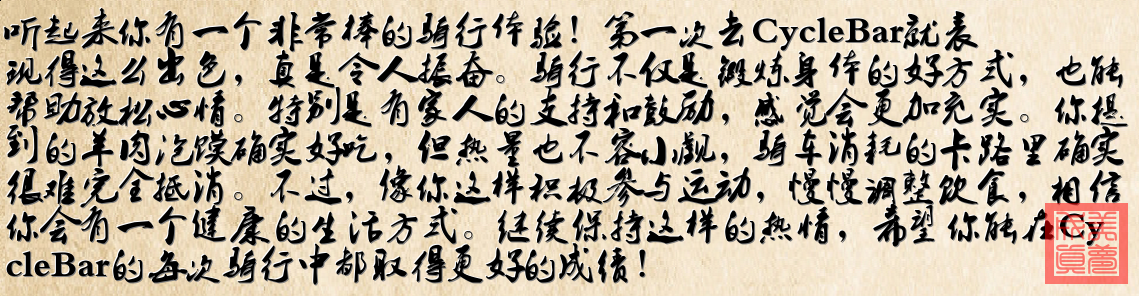 听起来你有一个非常棒的骑行体验！第一次去CycleBar就表
现得这么出色，真是令人振奋。骑行不仅是锻炼身体的好方式，也能
帮助放松心情。特别是有家人的支持和鼓励，感觉会更加充实。你提
到的羊肉泡馍确实好吃，但热量也不容小觑，骑车消耗的卡路里确实
很难完全抵消。不过，像你这样积极参与运动，慢慢调整饮食，相信
你会有一个健康的生活方式。继续保持这样的热情，希望你能在Cy
cleBar的每次骑行中都取得更好的成绩！